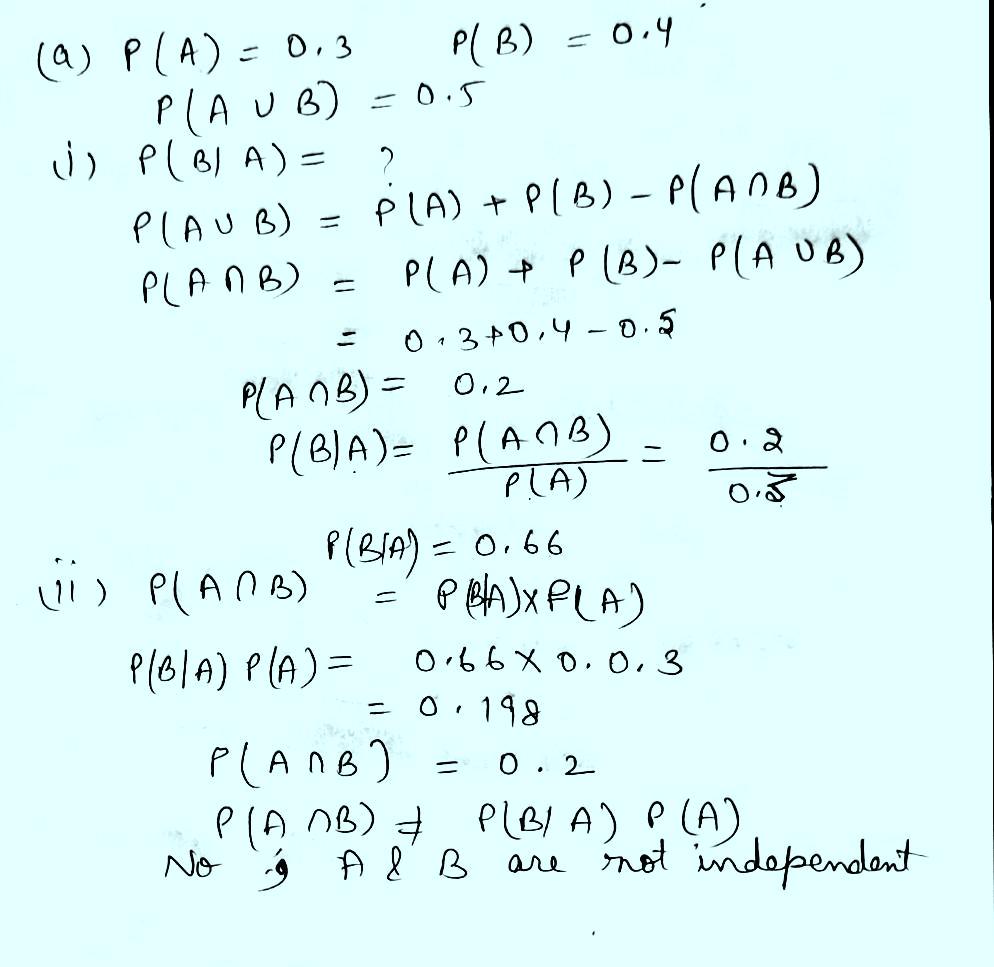 (a) P(A) = 0.3 P(B) = 0.4
P(A ∪ B) = 0.5
(i) P(B/A) = ?
P(A ∪ B) = P(A) + P(B) - P(A ∩ B)
P(A ∩ B) = P(A) + P(B) - P(A ∪ B)
= 0.3 + 0.4 - 0.5
P(A ∩ B) = 0.2
P(B|A) = P(A ∩ B) / P(A) = 0.2 /
P(B/A) = 0.66
(ii) P(A ∩ B) = P(B/A) × P(A)
P(B|A) P(A) = 0.66 × 0.0.3
= 0.198
P(A ∩ B) = 0.2
P(A ∩ B) ≠ P(B/A) P(A)
No, A & B are not independent